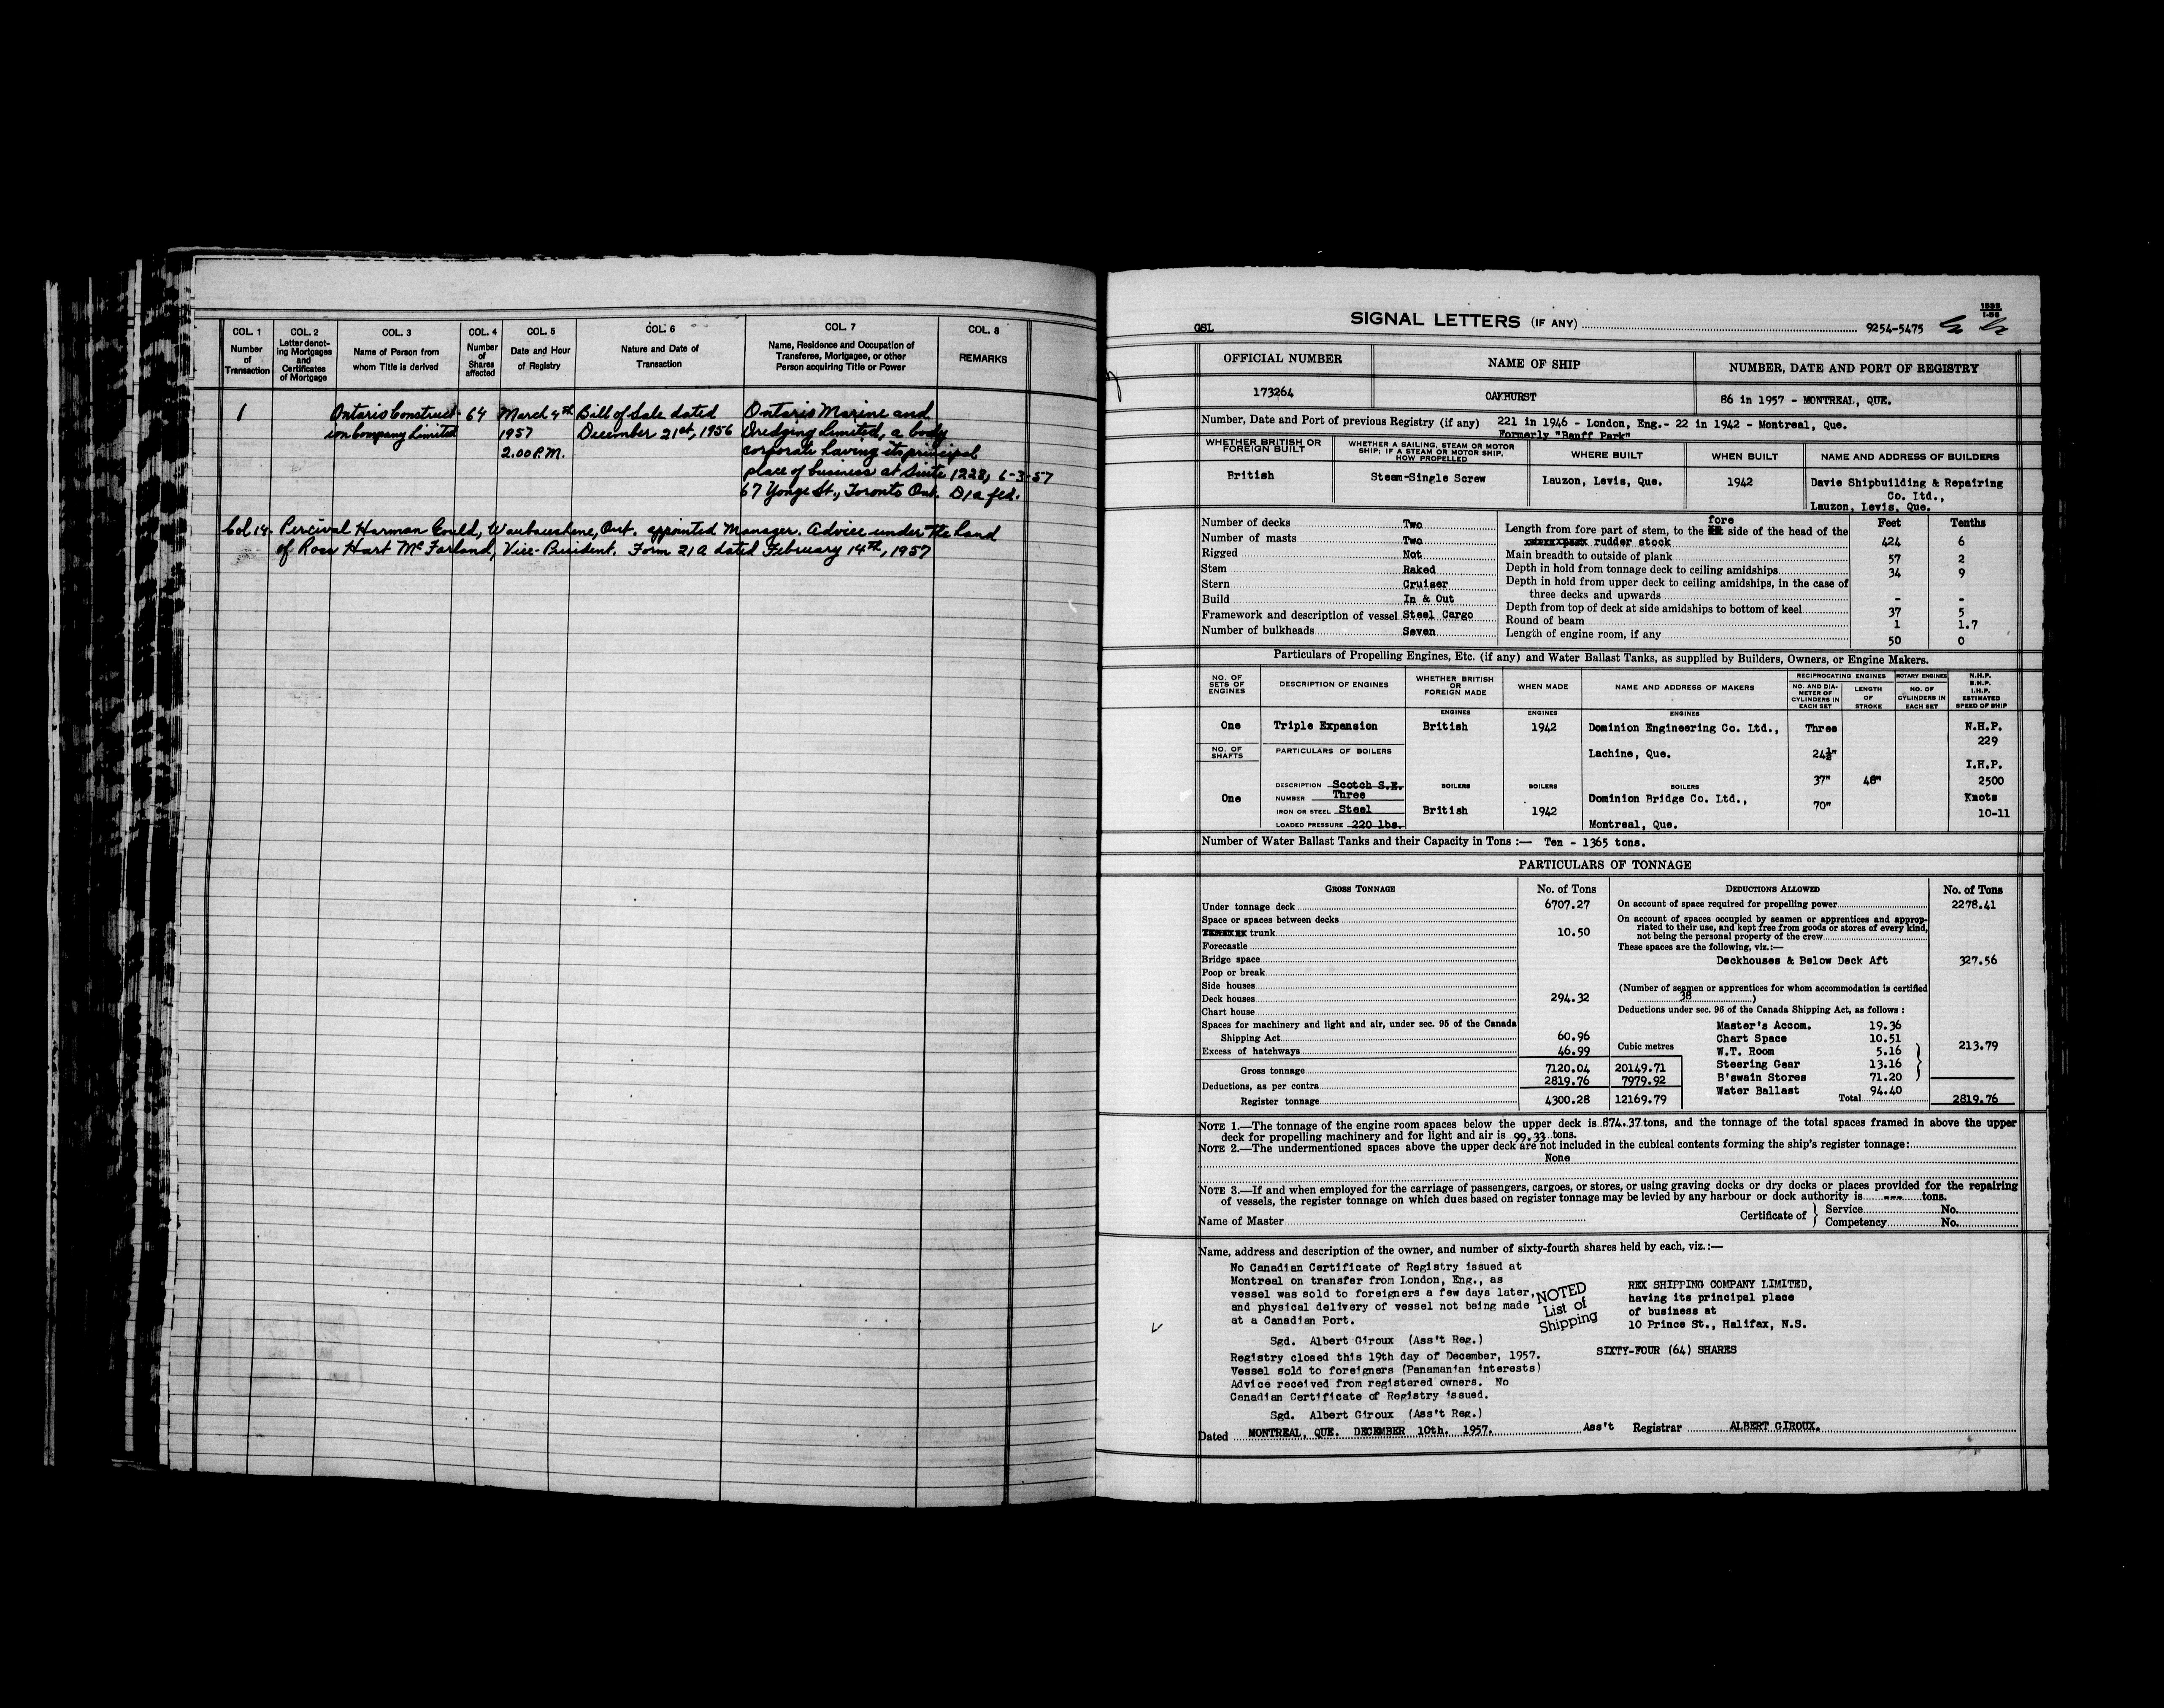 COL. 1 COL. 2 COL. 3 COL. 4 COL. 5 COL. 6 COL. 7 COL. 8
Number of Transaction
Letter denoting Mortgages and Certificates of Mortgage
Name of Person from whom Title is derived
Number of Shares affected
Date and Hour of Registry
Nature and Date of Transaction
Name, Residence and Occupation of Transferee, Mortgagee, or other Person acquiring Title or Power
REMARKS
1 Ontario Construct- 64 March 4th Bill of Sale dated Ontario Marine and
ion Company Limited 1957 December 21st, 1956 Dredging Limited, a body
2.00 P.M. corporate having its principal
place of business at Suite 1228, 6-3-57
67 Yonge St., Toronto Ont. D/a fld.
Col. 14. Percival Harman Gould, Waubaushene, Ont. appointed Manager. Advice under the hand
of Ross Hart McFarland, Vice-President. Form 21A dated February 14th, 1957
1-56
GSL SIGNAL LETTERS (IF ANY) 9254-5475
OFFICIAL NUMBER NAME OF SHIP NUMBER, DATE AND PORT OF REGISTRY
173264 OAKHURST 86 in 1957 - MONTREAL, QUE.
Number, Date and Port of previous Registry (if any) 221 in 1946 - London, Eng.- 22 in 1942 - Montreal, Que.
Formerly "Banff Park"
WHETHER BRITISH OR FOREIGN BUILT
WHETHER A SAILING, STEAM OR MOTOR SHIP; IF A STEAM OR MOTOR SHIP, HOW PROPELLED
WHERE BUILT WHEN BUILT NAME AND ADDRESS OF BUILDERS
British Steam-Single Screw Lauzon, Levis, Que. 1942 Davie Shipbuilding & Repairing
Co. Ltd.,
Lauzon, Levis, Que.
Number of decks Two
Number of masts Two
Rigged Not
Stem Raked
Stern Cruiser
Build In & Out
Framework and description of vessel Steel Cargo
Number of bulkheads Seven
Feet Tenths
fore
Length from fore part of stem, to the side of the head of the
rudder stock 424 6
Main breadth to outside of plank 57 2
Depth in hold from tonnage deck to ceiling amidships 34 9
Depth in hold from upper deck to ceiling amidships, in the case of
three decks and upwards - -
Depth from top of deck at side amidships to bottom of keel 37 5
Round of beam 1 1.7
Length of engine room, if any 50 0
Particulars of Propelling Engines, Etc. (if any) and Water Ballast Tanks, as supplied by Builders, Owners, or Engine Makers.
NO. OF SETS OF ENGINES
DESCRIPTION OF ENGINES
WHETHER BRITISH OR FOREIGN MADE
WHEN MADE
NAME AND ADDRESS OF MAKERS
RECIPROCATING ENGINES ROTARY ENGINES
NO. AND DIAMETER OF CYLINDERS IN EACH SET
LENGTH OF STROKE
NO. OF CYLINDERS IN EACH SET
N.H.P. B.H.P. I.H.P. ESTIMATED SPEED OF SHIP
ENGINES ENGINES ENGINES
One Triple Expansion British 1942 Dominion Engineering Co. Ltd., Three N.H.P.
229
NO. OF SHAFTS PARTICULARS OF BOILERS Lachine, Que. 24½"
I.H.P.
37" 48" 2500
DESCRIPTION Scotch S.E. BOILERS BOILERS BOILERS
One NUMBER Three Dominion Bridge Co. Ltd., 70" Knots
IRON OR STEEL Steel British 1942 10-11
LOADED PRESSURE 220 lbs. Montreal, Que.
Number of Water Ballast Tanks and their Capacity in Tons :— Ten - 1365 tons.
PARTICULARS OF TONNAGE
GROSS TONNAGE No. of Tons
Under tonnage deck 6707.27
Space or spaces between decks
trunk 10.50
Forecastle
Bridge space
Poop or break
Side houses
Deck houses 294.32
Chart house
Spaces for machinery and light and air, under sec. 95 of the Canada
Shipping Act 60.96
Excess of hatchways 46.99 Cubic metres
Gross tonnage 7120.04 20149.71
Deductions, as per contra 2819.76 7979.92
Register tonnage 4300.28 12169.79
DEDUCTIONS ALLOWED No. of Tons
On account of space required for propelling power 2278.41
On account of spaces occupied by seamen or apprentices and approp-
riated to their use, and kept free from goods or stores of every kind,
not being the personal property of the crew
These spaces are the following, viz.:—
Deckhouses & Below Deck Aft 327.56
(Number of seamen or apprentices for whom accommodation is certified
38 )
Deductions under sec. 96 of the Canada Shipping Act, as follows :
Master's Accom. 19.36
Chart Space 10.51
W.T. Room 5.16 213.79
Steering Gear 13.16
B'swain Stores 71.20
Water Ballast 94.40
Total 2819.76
NOTE 1.—The tonnage of the engine room spaces below the upper deck is 874.37 tons, and the tonnage of the total spaces framed in above the upper
deck for propelling machinery and for light and air is 99.33 tons.
NOTE 2.—The undermentioned spaces above the upper deck are not included in the cubical contents forming the ship's register tonnage:
None
NOTE 3.—If and when employed for the carriage of passengers, cargoes, or stores, or using graving docks or dry docks or places provided for the repairing
of vessels, the register tonnage on which dues based on register tonnage may be levied by any harbour or dock authority is --- tons.
Name of Master Certificate of { Service No.
Competency No.
Name, address and description of the owner, and number of sixty-fourth shares held by each, viz.:—
No Canadian Certificate of Registry issued at
Montreal on transfer from London, Eng., as
vessel was sold to foreigners a few days later,
and physical delivery of vessel not being made
at a Canadian Port.
Sgd. Albert Giroux (Ass't Reg.)
Registry closed this 19th day of December, 1957.
Vessel sold to foreigners (Panamanian interests)
Advice received from registered owners. No
Canadian Certificate of Registry issued.
Sgd. Albert Giroux (Ass't Reg.)
NOTED
List of
Shipping
REX SHIPPING COMPANY LIMITED,
having its principal place
of business at
10 Prince St., Halifax, N.S.
SIXTY-FOUR (64) SHARES
Dated MONTREAL, QUE. DECEMBER 10th. 1957. Ass't Registrar ALBERT GIROUX.